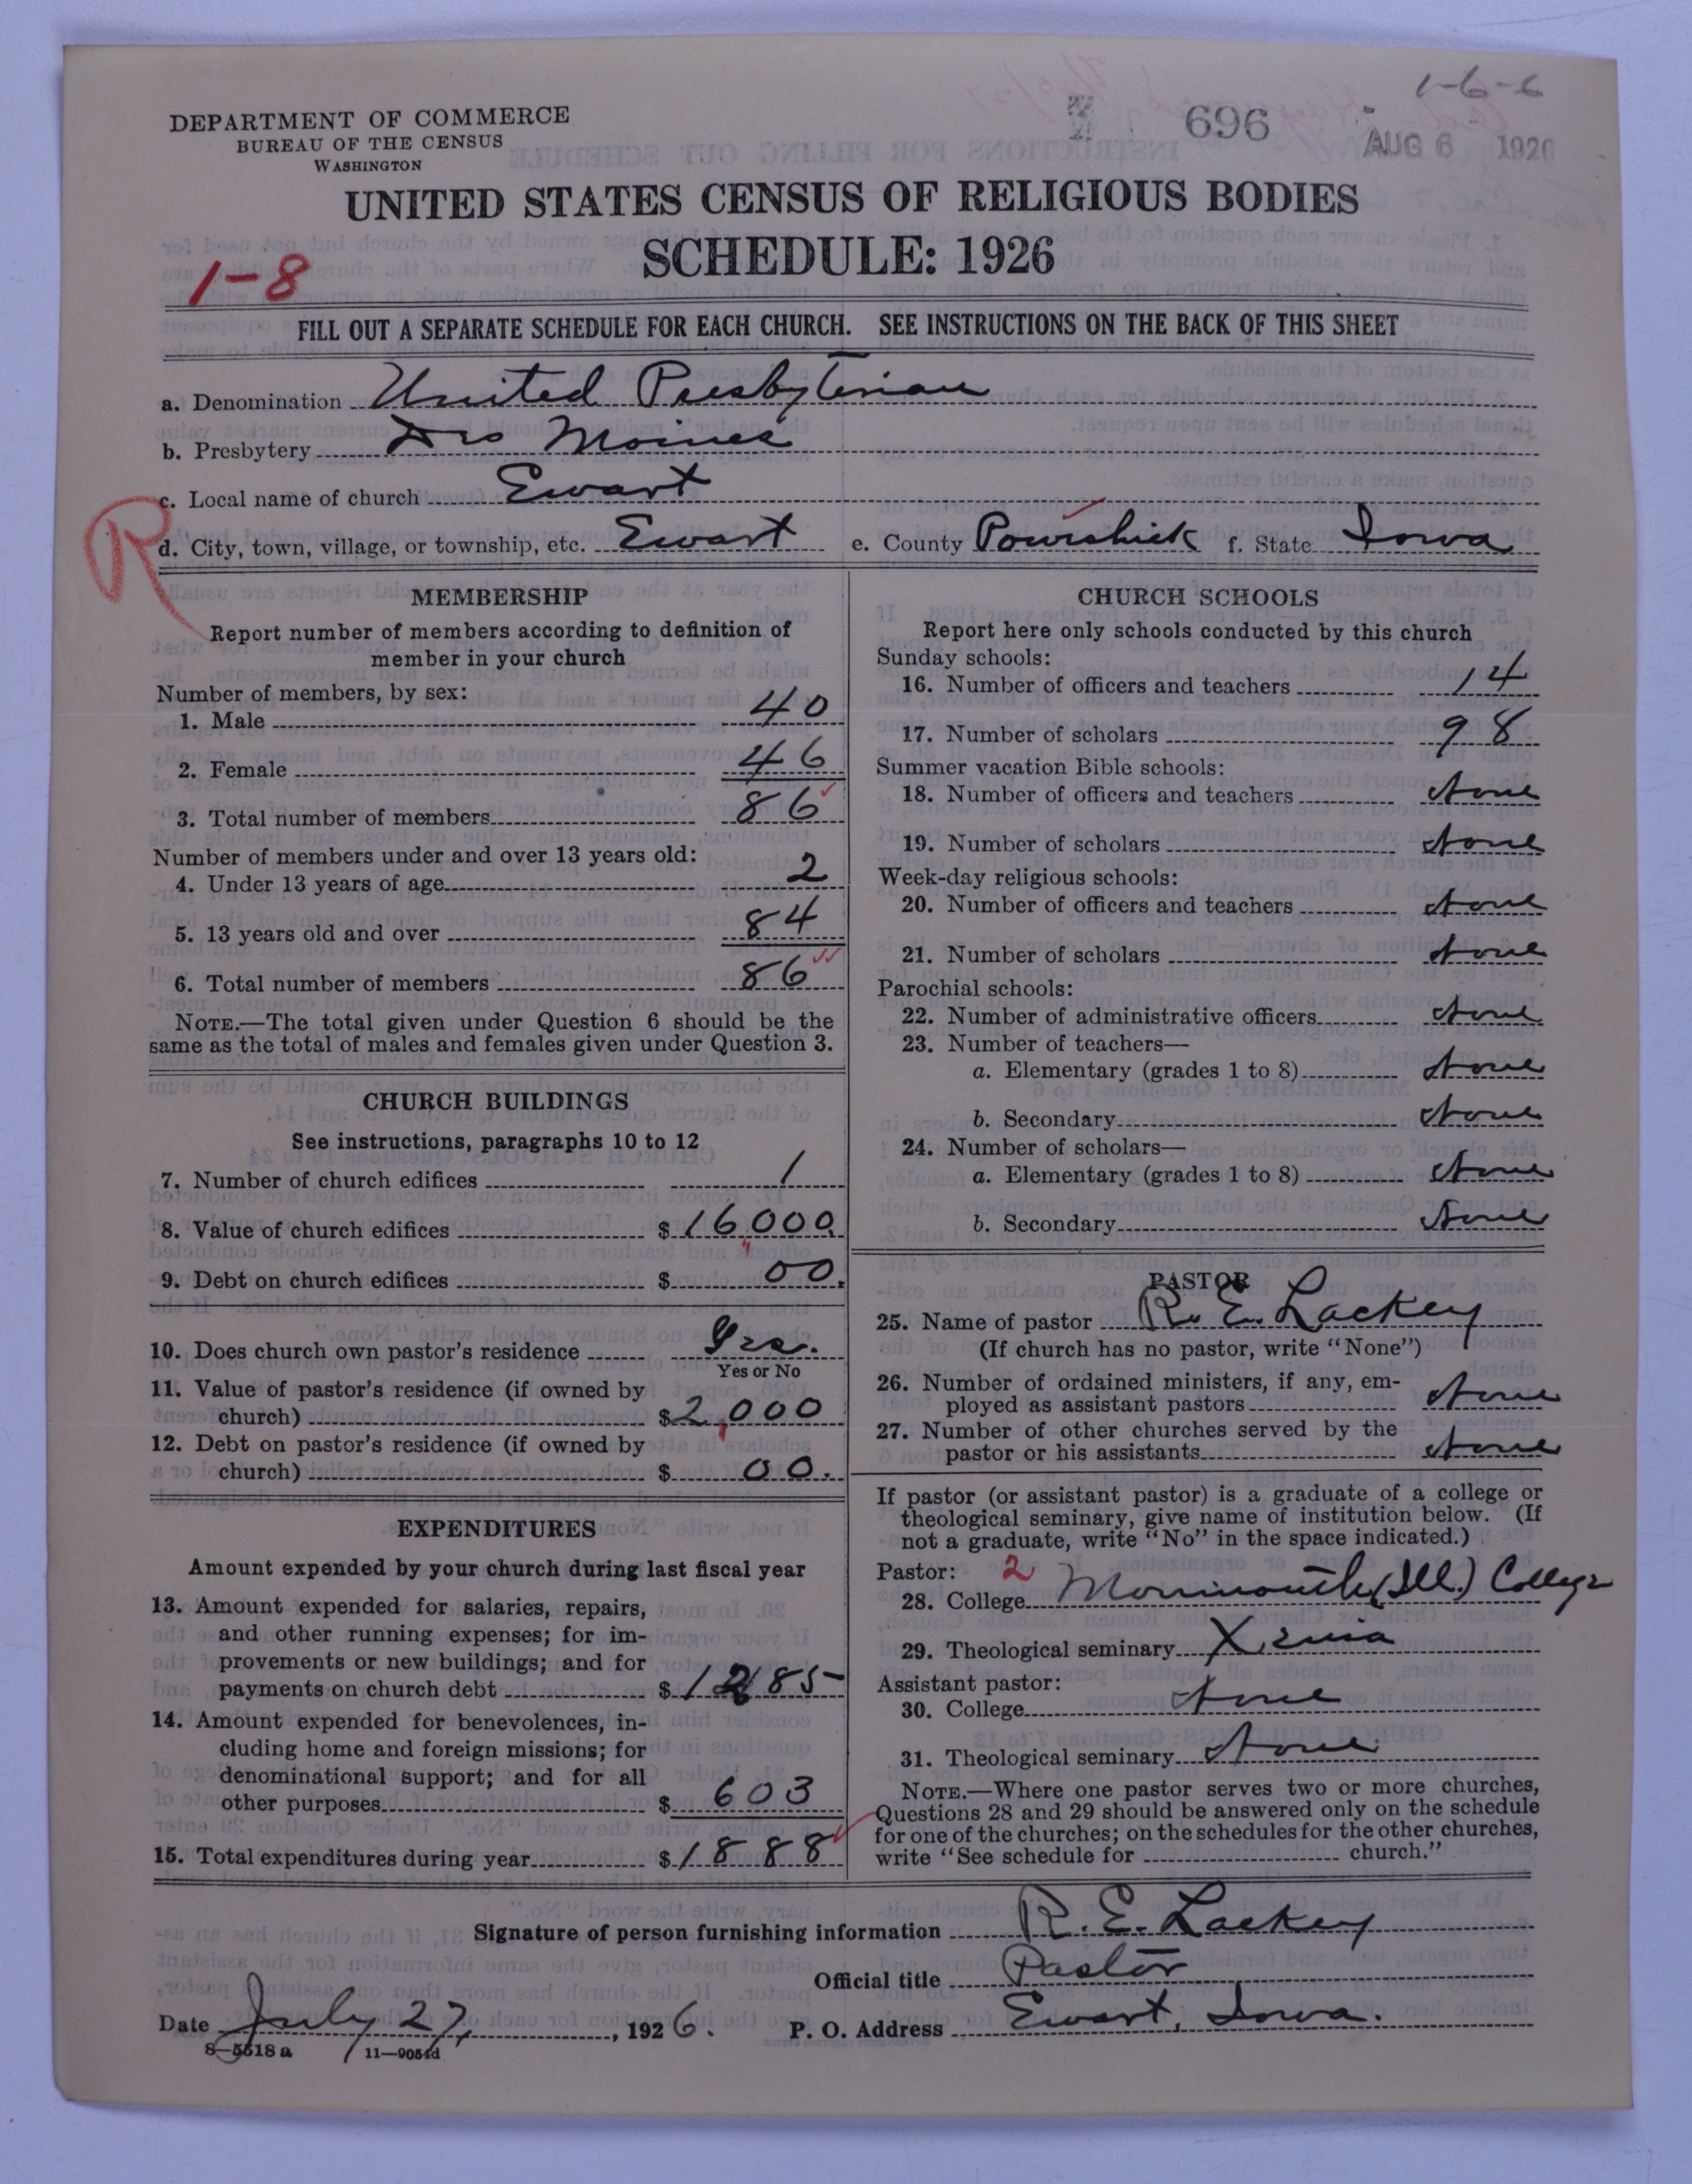 1-6-6
696
AUG 6 1926
DEPARTMENT OF COMMERCE
BUREAU OF THE CENSUS
WASHINGTON
UNITED STATES CENSUS OF RELIGIOUS BODIES
SCHEDULE: 1926
1-8
FILL OUT A SEPARATE SCHEDULE FOR EACH CHURCH. SEE INSTRUCTIONS ON THE BACK OF THIS SHEET
a. Denomination United Presbyterian
b. Presbytery Des Moines
c. Local name of church Ewart
R
d. City, town, village, or township, etc. Ewart e. County Poweshiek f. State Iowa
MEMBERSHIP
Report number of members according to definition of
member in your church
Number of members, by sex:
1. Male 40
2. Female 46
3. Total number of members 86
Number of members under and over 13 years old:
4. Under 13 years of age 2
5. 13 years old and over 84
6. Total number of members 86
NOTE.—The total given under Question 6 should be the
same as the total of males and females given under Question 3.
CHURCH BUILDINGS
See instructions, paragraphs 10 to 12
7. Number of church edifices 1
8. Value of church edifices $16,000
9. Debt on church edifices $ 00.
10. Does church own pastor's residence Yes.
Yes or No
11. Value of pastor's residence (if owned by
church) $2,000
12. Debt on pastor's residence (if owned by
church) $ 00.
EXPENDITURES
Amount expended by your church during last fiscal year
13. Amount expended for salaries, repairs,
and other running expenses; for im-
provements or new buildings; and for
payments on church debt $1285
14. Amount expended for benevolences, in-
cluding home and foreign missions; for
denominational support; and for all
other purposes $ 603
15. Total expenditures during year $1888
CHURCH SCHOOLS
Report here only schools conducted by this church
Sunday schools:
16. Number of officers and teachers 14
17. Number of scholars 98
Summer vacation Bible schools:
18. Number of officers and teachers None
19. Number of scholars None
Week-day religious schools:
20. Number of officers and teachers None
21. Number of scholars None
Parochial schools:
22. Number of administrative officers None
23. Number of teachers—
a. Elementary (grades 1 to 8) None
b. Secondary None
24. Number of scholars—
a. Elementary (grades 1 to 8) None
b. Secondary None
PASTOR
25. Name of pastor R. E. Lackey
(If church has no pastor, write "None")
26. Number of ordained ministers, if any, em-
ployed as assistant pastors None
27. Number of other churches served by the
pastor or his assistants None
If pastor (or assistant pastor) is a graduate of a college or
theological seminary, give name of institution below. (If
not a graduate, write "No" in the space indicated.)
Pastor: 2
28. College Monmouth (Ill.) College
29. Theological seminary Xenia
Assistant pastor:
30. College None
31. Theological seminary None
NOTE.—Where one pastor serves two or more churches,
Questions 28 and 29 should be answered only on the schedule
for one of the churches; on the schedules for the other churches,
write "See schedule for church."
Signature of person furnishing information R. E. Lackey
Official title Pastor
Date July 27, 1926. P. O. Address Ewart, Iowa.
8-5518a 11—9054d